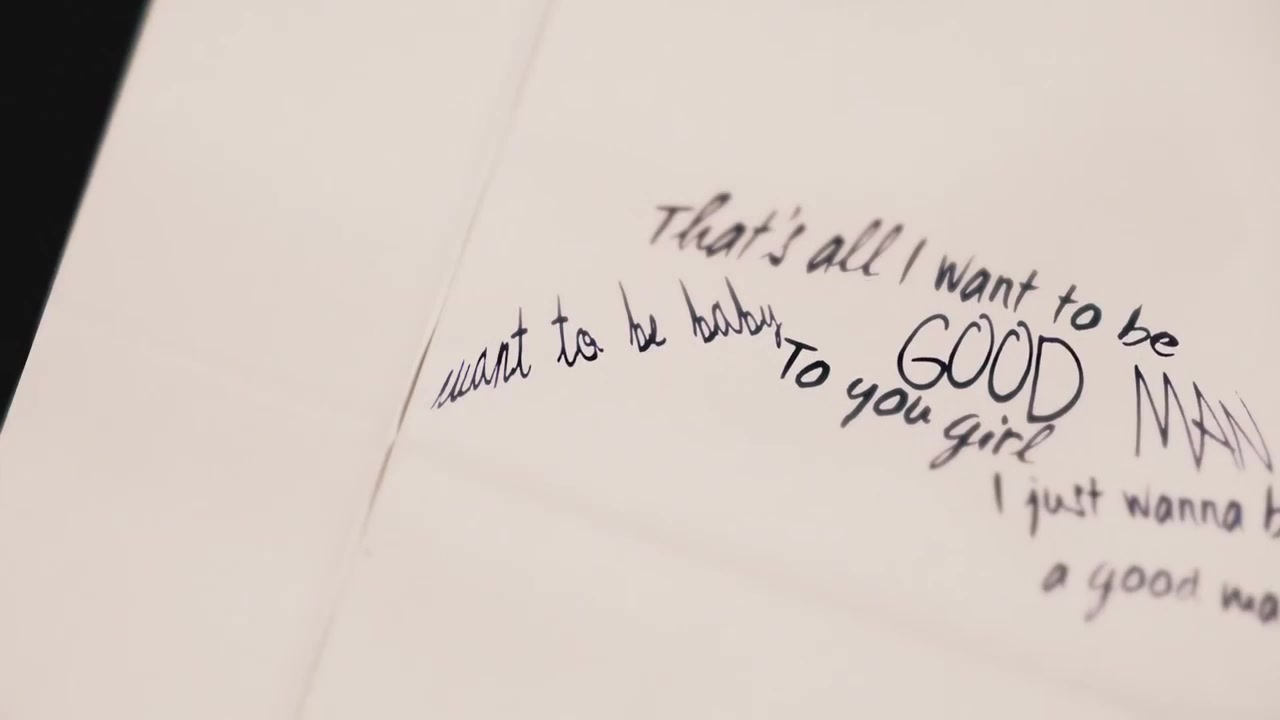 That's all I want to be
want to be baby
GOOD MAN
To you girl
I just wanna
a good